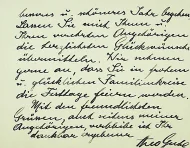 besseres u. schöneres Jahr begehen.
Lassen Sie mich Ihnen u.
Ihren verehrten Angehörigen
die herzlichsten Glückwünsche
übermitteln. Wir nehmen
gerne an, dass Sie in frohem
u. glücklichen Familienkreise
die Festtage feiern werden.
Mit den freundlichsten
Grüssen, auch seitens meiner
Angehörigen, verbleibe ich Ihr
dankbar ergebener